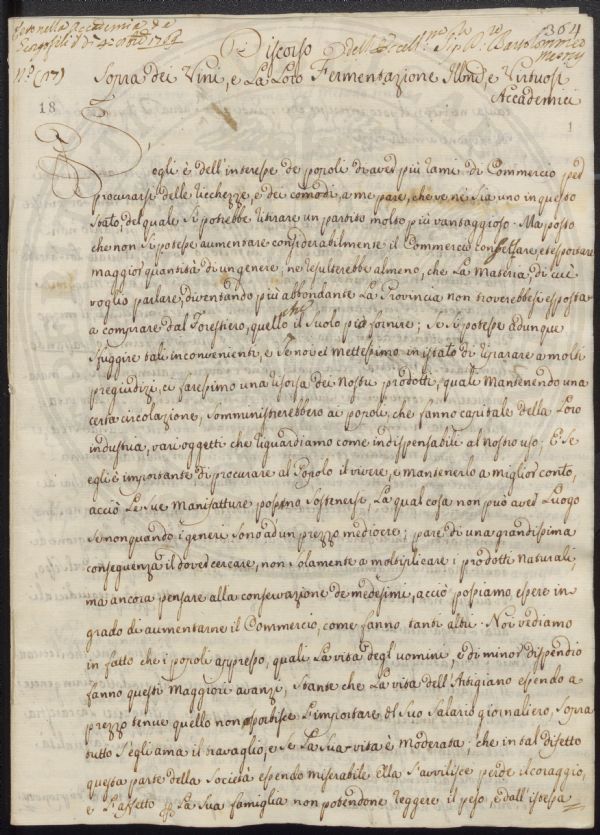 nella Accademia de
Georgofili di 4
364
Discorso dell'Eccell.mo Sig. D.re Bartolommeo
Mesny
N.o (17)
Sopra dei Vini, e La Loro Fermentazione Illmi, e Virtuosi
Accademici
18
1
Se egli è dell'interesse de popoli di aver più rami di Commercio per
procurarsi delle ricchezze, e dei comodi, a me pare, che ve ne sia uno in questo
Stato, del quale si potrebbe ritrarre un partito molto più vantaggioso. Ma posto
che non si potesse aumentare considerabilmente il Commercio con esportare
maggior quantità di un genere, ne resulterebbe almeno, che La Materia, di cui
voglio parlare, diventando più abbondante La Provincia non troverebbesi esposta
a comprare dal Forestiero, quello che il Suolo può fornire; Se si potesse adunque
sfuggire tali inconvenienti, e Se noi ci mettessimo in istato di riparare a molti
pregiudizi, ci faressimo una risorsa dei Nostri prodotti, quali Mantenendo una
certa circolazione, somministrerebbero ai popoli, che fanno capitale della Loro
industria, vari oggetti che riguardiamo come indispensabili al nostro uso; E Se
egli è importante di procurare al Popolo il vivere, e mantenerlo a miglior conto,
acciò Le Sue Manifatture possino sostenersi, La qual cosa non può aver Luogo
Se non quando i generi sono ad un prezzo mediocre; pare di una grandissima
conseguenza il dover cercare, non solamente a moltiplicare i prodotti Naturali,
ma ancora pensare alla conservazione de medesimi, acciò possiamo essere in
grado di aumentarne il Commercio, come fanno tanti altri. Noi vediamo
in fatto che i popoli appresso, quali La vita degl'uomini, è di minor dispendio
fanno questi Maggiori avanzi, Stante che La vita dell'Artigiano essendo a
prezzo tenue quello non assorbisce L'importare del Suo Salario giornaliero, Sopra
tutto S'egli ama il travaglio, e Se La Sua vita è Moderata; che in tal difetto
questa parte della Società essendo miserabile Ella S'avvilisce perde il coraggio,
e L'affetto per La Sua famiglia non potendone reggere il peso, e dall'istessa